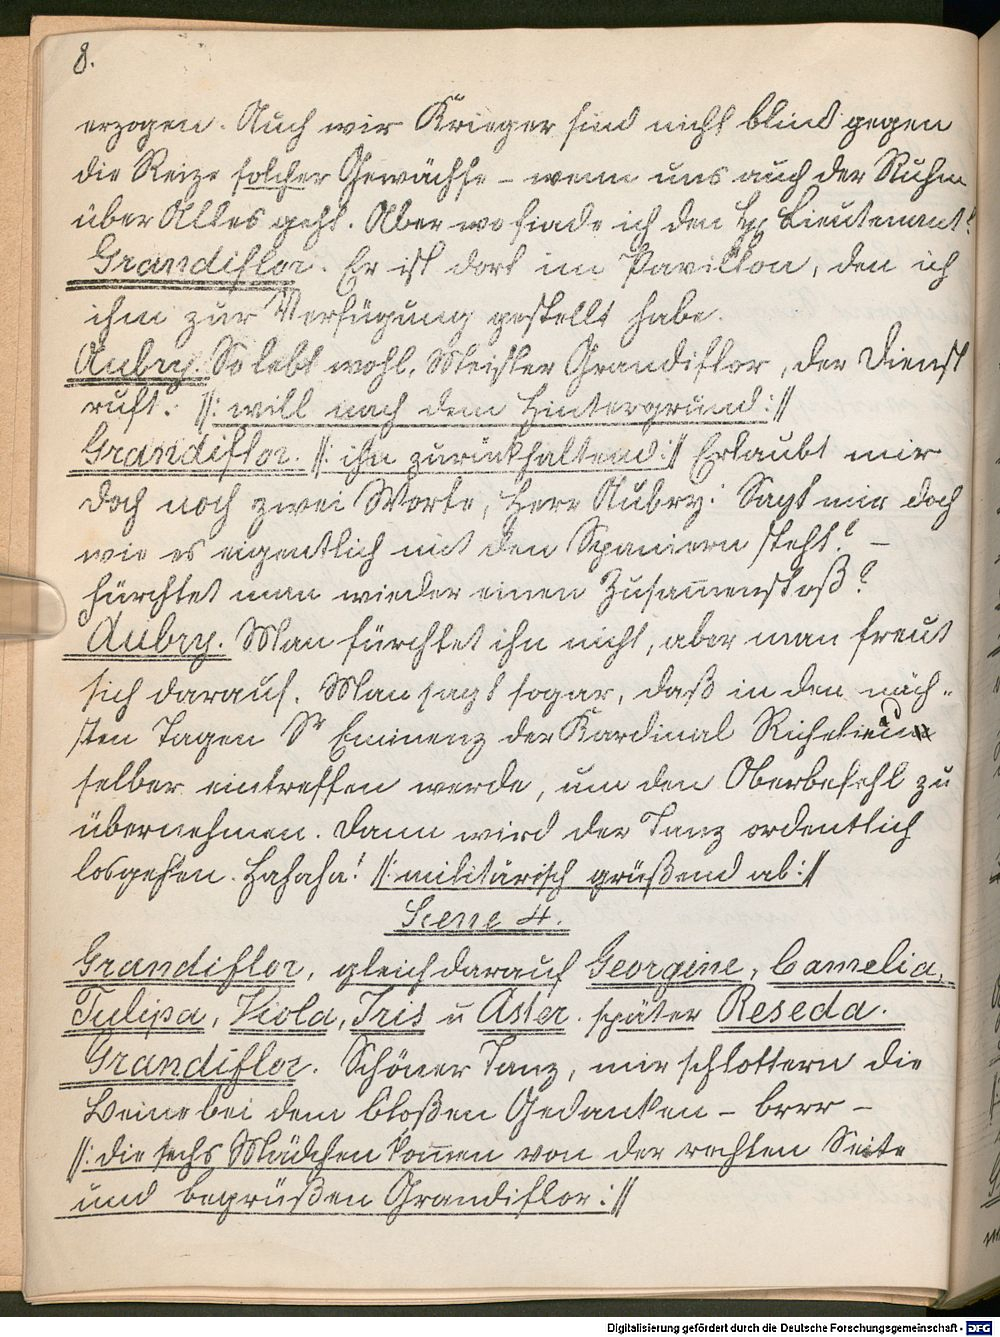 8.
erzogen. Auch wir Krieger sind nicht blind gegen
die Reize solcher Gewächse – wenn uns auch der Ruhm
über Alles geht. Aber wo finde ich den Hr Lieutenant?
Grandiflor. Er ist dort im Pavillon, den ich
ihm zur Verfügung gestellt habe.
Aubry. So lebt wohl, Meister Grandiflor, der Dienst
ruft. //: will nach dem Hintergrund ://
Grandiflor. //: ihn zurückhaltend :// Erlaubt mir
doch noch zwei Worte, Herr Aubry! Sagt mir doch
wie es eigentlich mit den Spaniern steht? –
Fürchtet man wieder einen Zusam̅enstoß?
Aubry. Man fürchtet ihn nicht, aber man freut
sich darauf. Man sagt sogar, daß in den näch-
sten Tagen Se Eminenz der Kardinal Richelieu
selber eintreffen werde, um den Oberbefehl zu
übernehmen. Dann wird der Tanz ordentlich
losgehen. Hahaha! //: militärisch grüßend ab ://
Scene 4.
Grandiflor, gleich darauf Georgine, Camelia,
Tulipa, Viola, Iris u Aster. später Reseda.
Grandiflor. Schöner Tanz, mir schlottern die
Beine bei dem bloßen Gedanken – brrr –
//: die sechs Mädchen kom̅en von der rechten Seite
und begrüßen Grandiflor ://
Digitalisierung gefördert durch die Deutsche Forschungsgemeinschaft - DFG